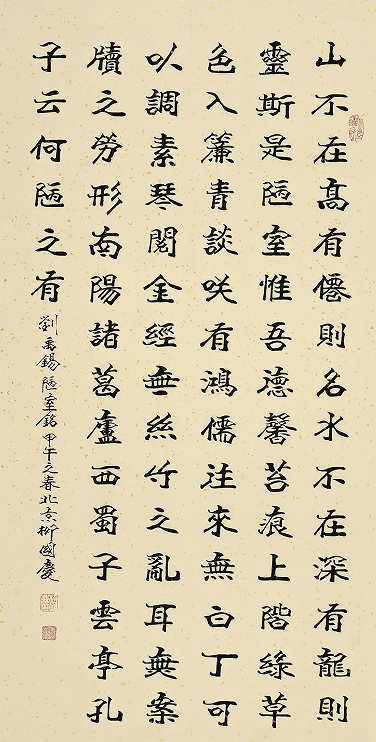 山不在髙有僊則名水不在深有龍則
靈斯是陋室惟吾德馨苔痕上階綠草
色入簾青談咲有鴻儒往來無白丁可
以調素琴閱金經無絲竹之亂耳無案
牘之勞形南陽諸葛廬西蜀子雲亭孔
子云何陋之有
劉禹錫陋室銘甲午之春北京柳國慶